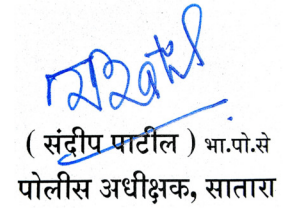 ( संदीप पाटील ) भा.पो.से
पोलीस अधीक्षक, सातारा